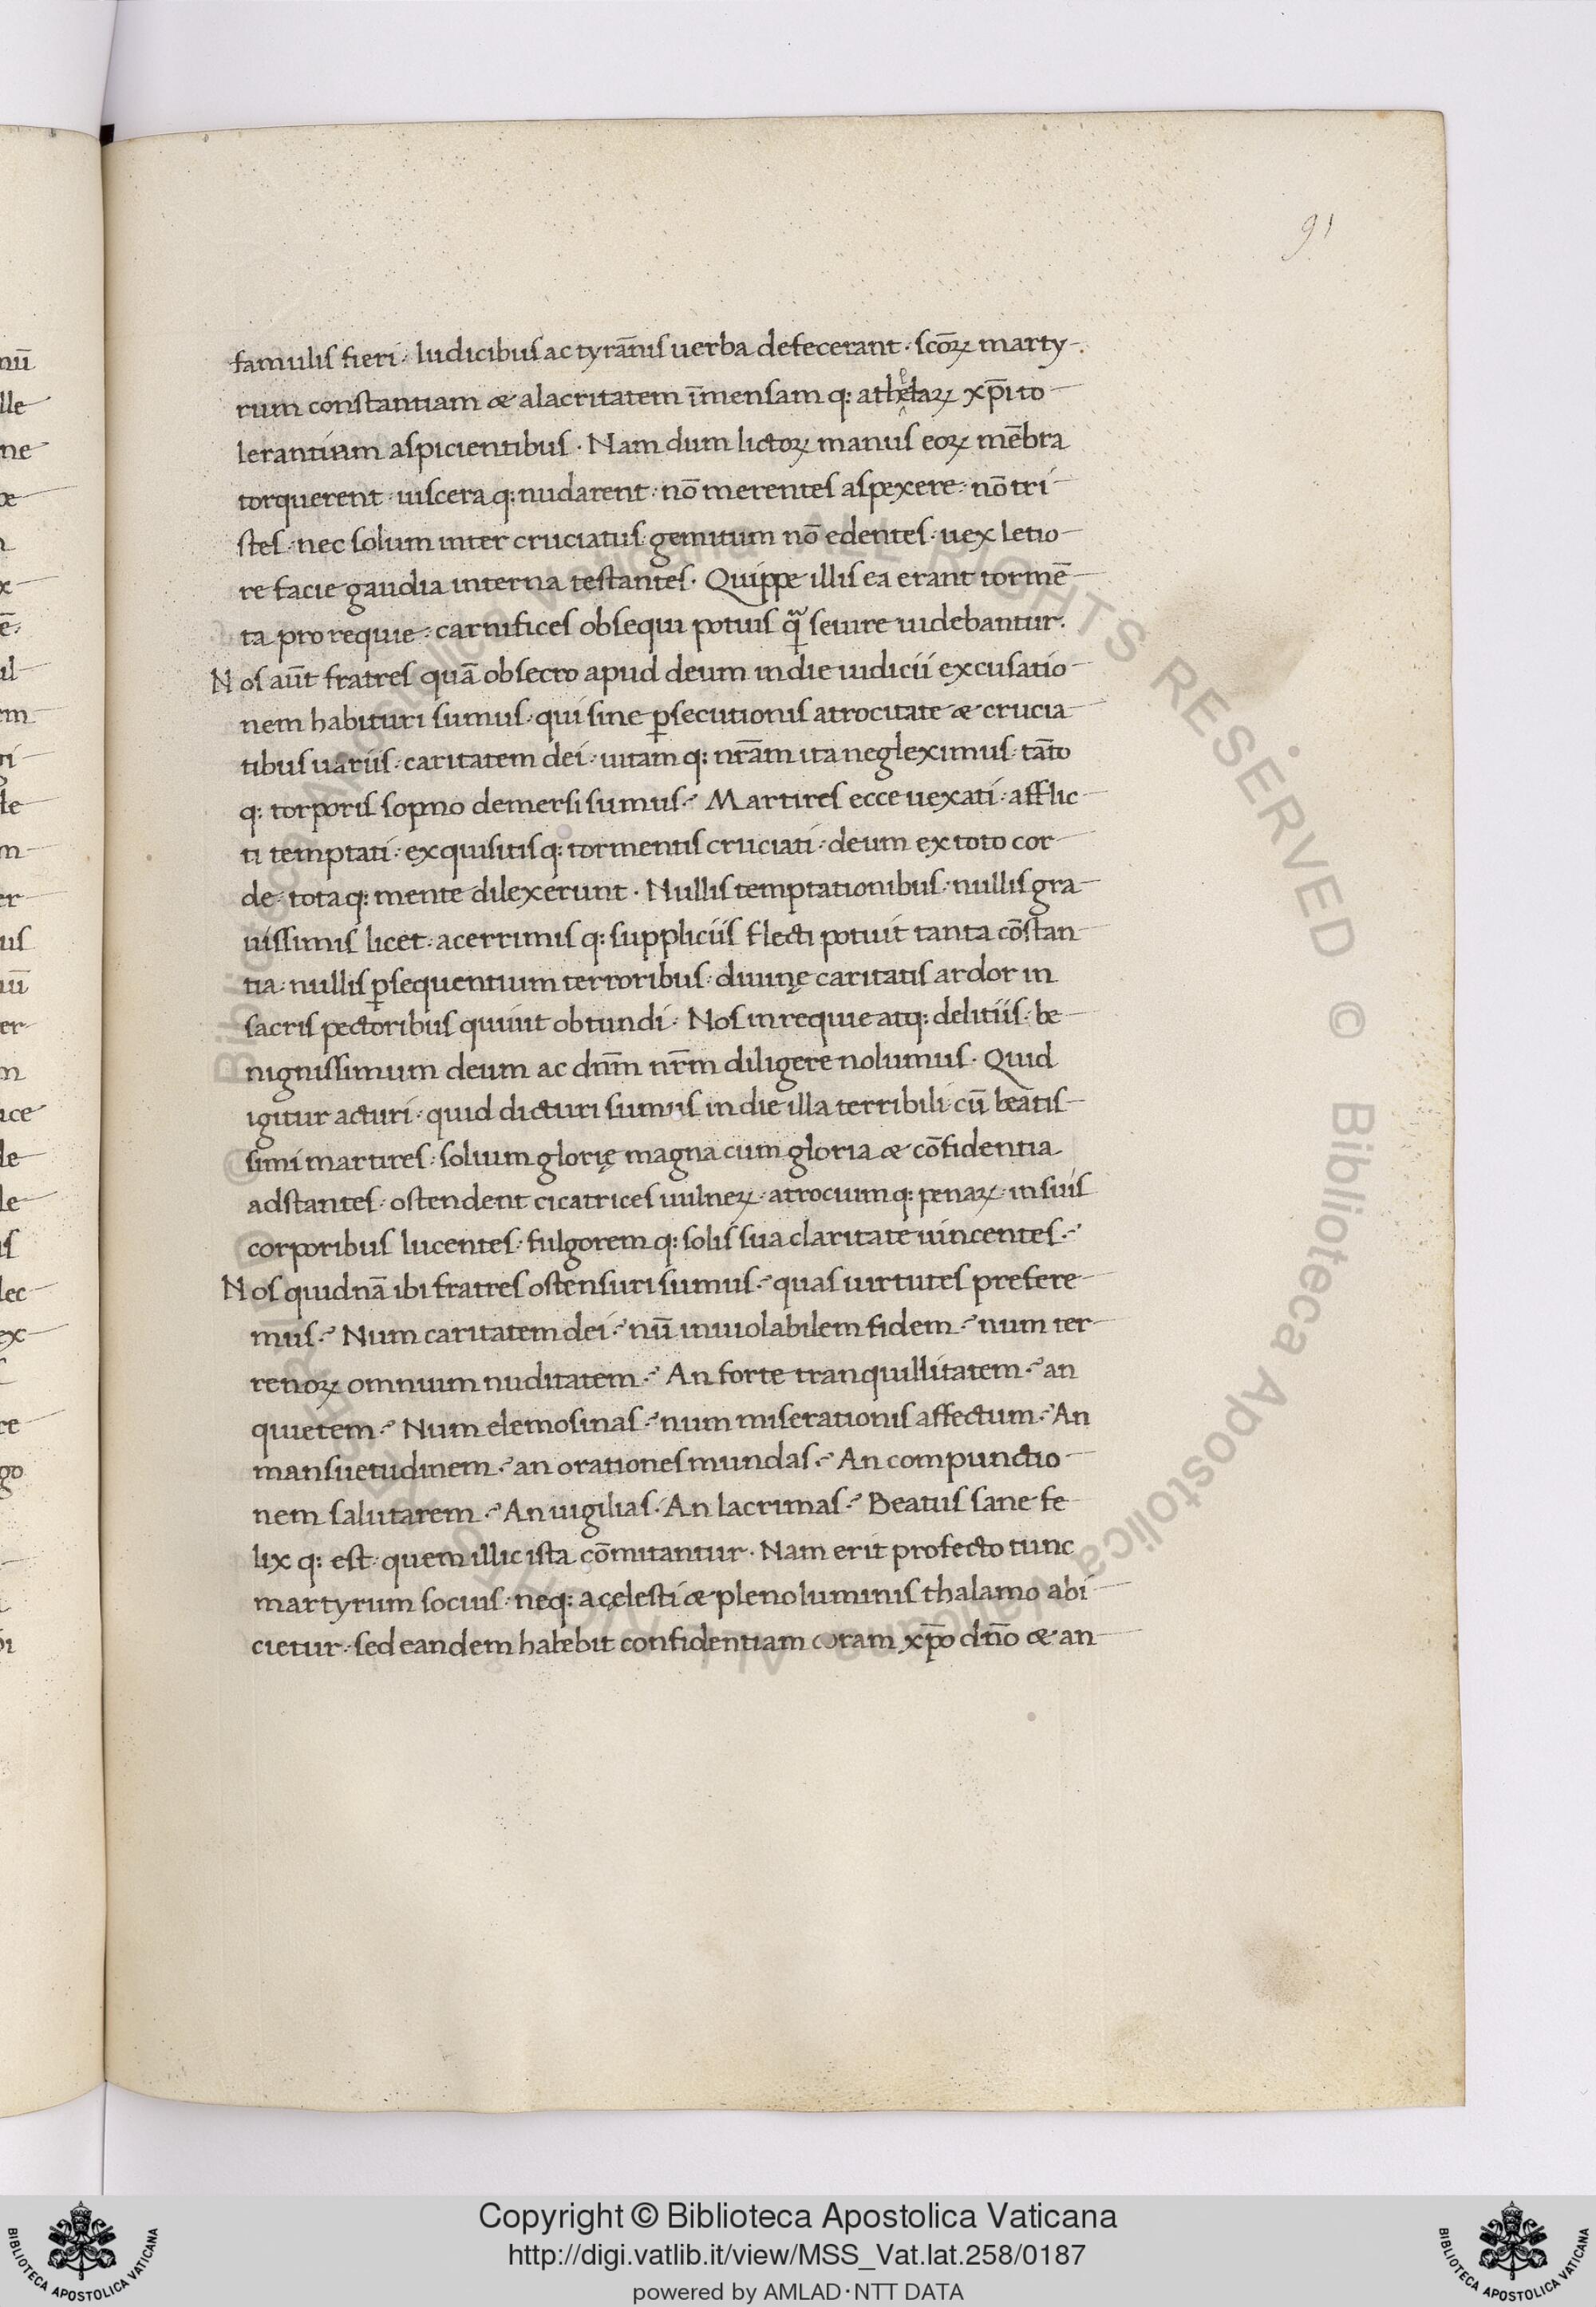 91
famulis fieri · Iudicibus ac tyrānis uerba defecerant · scōꝝ marty-
rum constantiam & alacritatem īmensam q: athletaꝝ xp̄i to
lerantiam aspicientibus · Nam dum lictoꝝ manus eoꝝ mēbra
torquerent · uiscera q: nudarent · nō merentes aspexere · nō tri
stes · nec solum inter cruciatus gemitum nō edentes · uex letio
re facie gaudia interna testantes · Quippe illis ea erant tormē
ta pro requie · carnifices obsequi potius qᷓ seuire uidebantur ·
Nos aūt fratres quā obsecro apud deum in die iudicii excusatio
nem habituri sumus · qui sine ꝑsecutionis atrocitate & crucia
tibus uariis · caritatem dei · uitam q: nr̄am ita negleximus · tāto
q: torporis sopno demersi sumus ·' Martires ecce uexati · afflic
ti temptati · exquisitis q: tormentis cruciati · deum ex toto cor
de · tota q: mente dilexerunt · Nullis temptationibus · nullis gra
uissimis licet · acerrimis q: suppliciis flecti potuit tanta cōstan
tia · nullis ꝑsequentium terroribus · diuinę caritatis ardor in
sacris pectoribus quiuit obtundi · Nos in requie atq: delitiis · be
nignissimum deum ac dn̄m nr̄m diligere nolumus · Quid
igitur acturi · quid dicturi sumus in die illa terribili · cū beatis
simi martires · solium glorię magna cum gloria & cōfidentia
adstantes · ostendent cicatrices uulneꝝ · atrocium q: penaꝝ · in suis
corporibus lucentes · fulgorem q: solis sua claritate uincentes ·'
Nos quidnā ibi fratres ostensuri sumus ·' quas uirtutes prefere
mus ·' Num caritatem dei ·' nū inuiolabilem fidem ·' num ter
renoꝝ omnium nuditatem ·' An forte tranquillitatem ·' an
quietem ·' Num elemosinas ·' num miserationis affectum ·' An
mansuetudinem ·' an orationes mundas ·' An compunctio
nem salutarem ·' An uigilias · An lacrimas ·' Beatus sane fe
lix q: est · quem illic ista cōmitantur · Nam erit profecto tunc
martyrum socius · neq: a cęlesti & pleno luminis thalamo abi
cietur · sed eandem habebit confidentiam coram xp̄o dn̄o & an
Copyright © Biblioteca Apostolica Vaticana
http://digi.vatlib.it/view/MSS_Vat.lat.258/0187
powered by AMLAD·NTT DATA